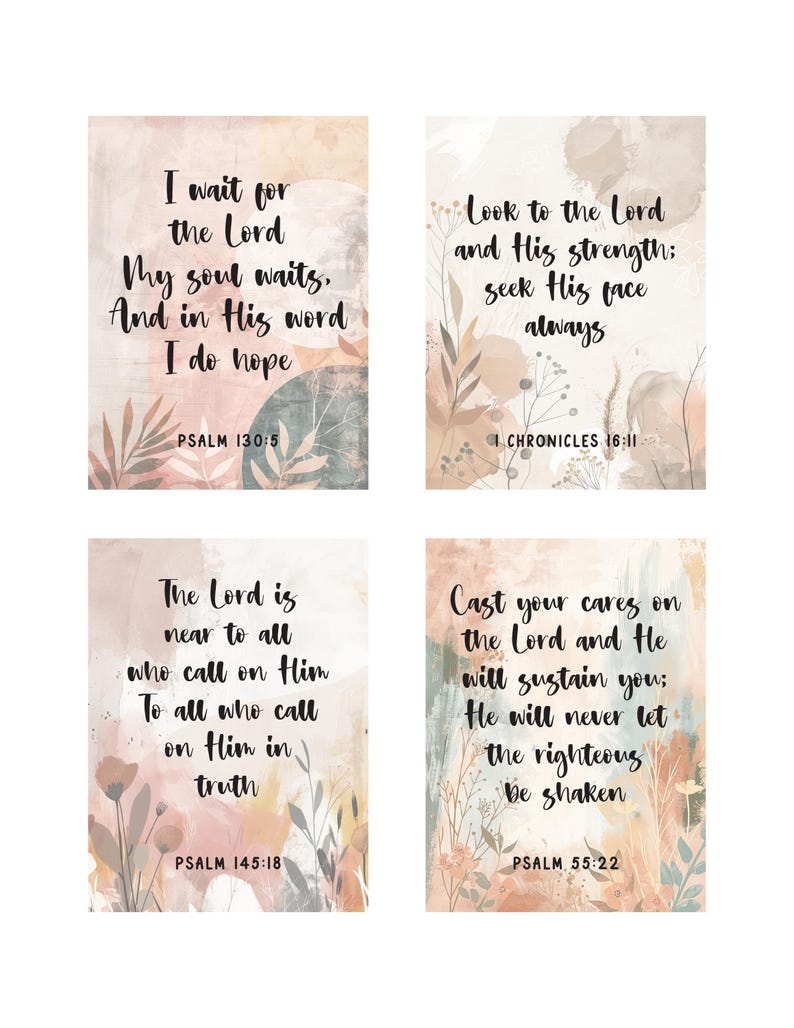 I wait for
the Lord
My soul waits,
And in His word
I do hope
PSALM 130:5
Look to the Lord
and His strength;
seek His face
always
1 CHRONICLES 16:11
The Lord is
near to all
who call on Him
To all who call
on Him in
truth
PSALM 145:18
Cast your cares on
the Lord and He
will sustain you;
He will never let
the righteous
be shaken
PSALM 55:22